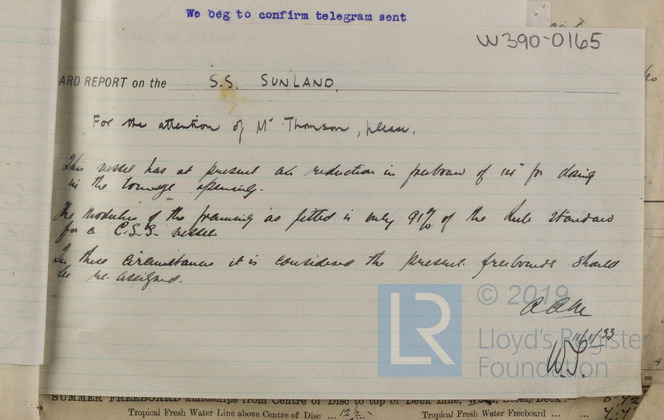 We beg to confirm telegram sent
W390-0165
ARD REPORT on the S.S. SUNLAND.
For the attention of Mr Thomson, please.
This vessel has at present a reduction in freeboard of 1¼" for closing
in the tonnage opening.
The modulus of the framing as fitted is only 91% of the Rule standard
for a C.S.S. vessel.
In these circumstances it is considered the present freeboards should
be re assigned.
© 2019
LR
Lloyd's Register
Foundation
11/11/33
W.T.
SUMMER FREEBOARD from Centre of Disc to top of Deck Line,
Tropical Fresh Water Line above Centre of Disc ... 12½
Tropical Fresh Water Freeboard ...